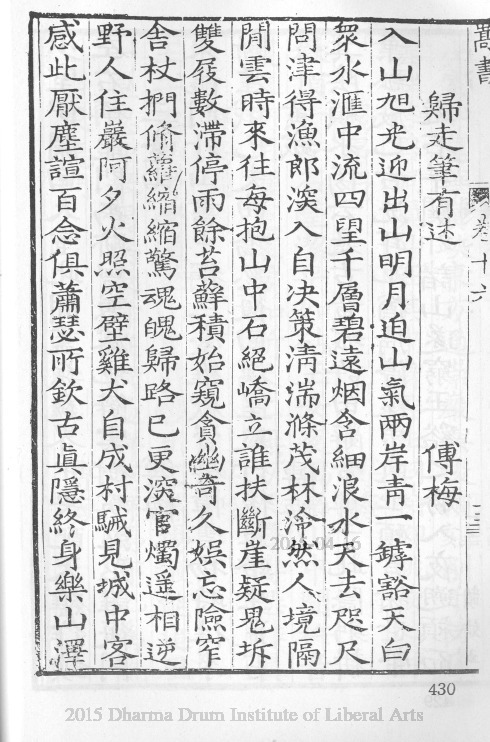 嵩書
卷十六
歸走筆有述　傅梅
入山旭光迎出山明月迫山氣兩岸靑一罅豁天白
衆水滙中流四望千層碧遠烟含細浪水天去咫尺
問津得漁郎深入自决策淸湍滌茂林泠然人境隔
閒雲時來往每抱山中石絕嶠立誰扶斷崖疑鬼坼
雙屐數滯停雨餘苔蘚積始窺貪幽奇久娛忘險窄
舍杖捫脩蘿縮縮驚魂魄歸路已更深官燭遥相逆
野人住巖阿夕火照空壁雞犬自成村駴見城中客
感此厭塵諠百念俱蕭瑟所欽古眞隱終身樂山澤
430
2015 Dharma Drum Institute of Liberal Arts